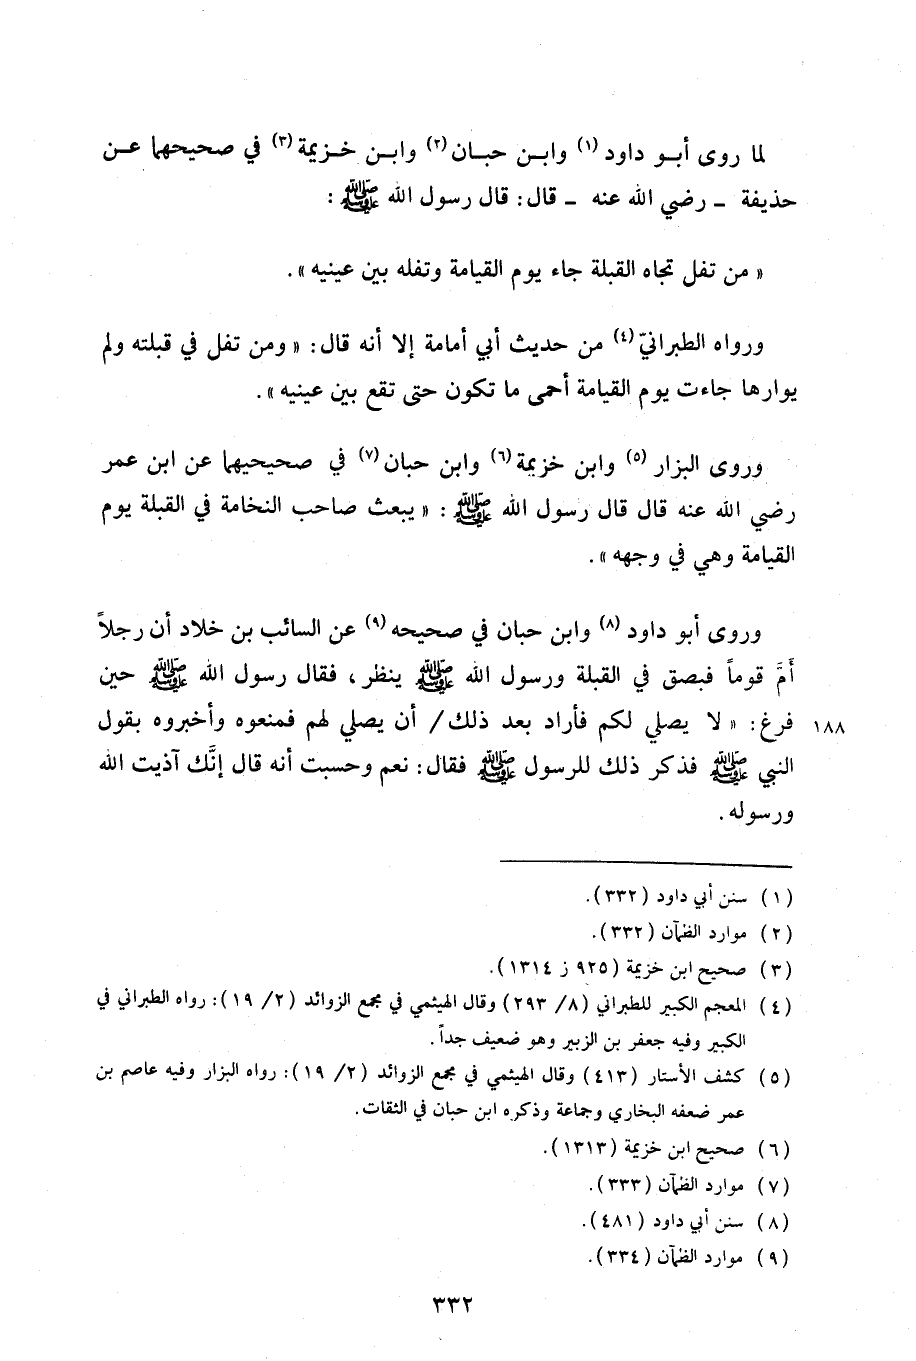 لما روى أبـو داود (١) وابـن حبـان (٢) وابـن خـزيمة (٣) في صحيحهما عـن
حذيفة ـ رضي الله عنه ـ قال: قال رسول الله ﷺ :
« من تفل تجاه القبلة جاء يوم القيامة وتفله بين عينيه ».
ورواه الطبرانيّ (٤) من حديث أبي أمامة إلا أنه قال: « ومن تفل في قبلته ولم
يوارها جاءت يوم القيامة أحمى ما تكون حتى تقع بين عينيه ».
وروى البزار (٥) وابن خزيمة (٦) وابن حبان (٧) في صحيحيهما عن ابن عمر
رضي الله عنه قال قال رسول الله ﷺ : « يبعث صاحب النخامة في القبلة يوم
القيامة وهي في وجهه ».
وروى أبو داود (٨) وابن حبان في صحيحه (٩) عن السائب بن خلاد أن رجلاً
أَمَّ قوماً فبصق في القبلة ورسول الله ﷺ ينظر ، فقال رسول الله ﷺ حين
فرغ: « لا يصلي لكم فأراد بعد ذلك/ أن يصلي لهم فمنعوه وأخبروه بقول ١٨٨
النبي ﷺ فذكر ذلك للرسول ﷺ فقال: نعم وحسبت أنه قال إنَّك آذيت الله
ورسوله .
(١) سنن أبي داود (٣٣٢).
(٢) موارد الظمآن (٣٣٢).
(٣) صحيح ابن خزيمة (٩٢٥ ز ١٣١٤).
(٤) المعجم الكبير للطبراني (٨/ ٢٩٣) وقال الهيثمي في مجمع الزوائد (٢/ ١٩): رواه الطبراني في
الكبير وفيه جعفر بن الزبير وهو ضعيف جداً.
(٥) كشف الأستار (٤١٣) وقال الهيثمي في مجمع الزوائد (٢/ ١٩): رواه البزار وفيه عاصم بن
عمر ضعفه البخاري وجماعة وذكره ابن حبان في الثقات.
(٦) صحيح ابن خزيمة (١٣١٣).
(٧) موارد الظمآن (٣٣٣).
(٨) سنن أبي داود (٤٨١).
(٩) موارد الظمآن (٣٣٤).
٣٣٢